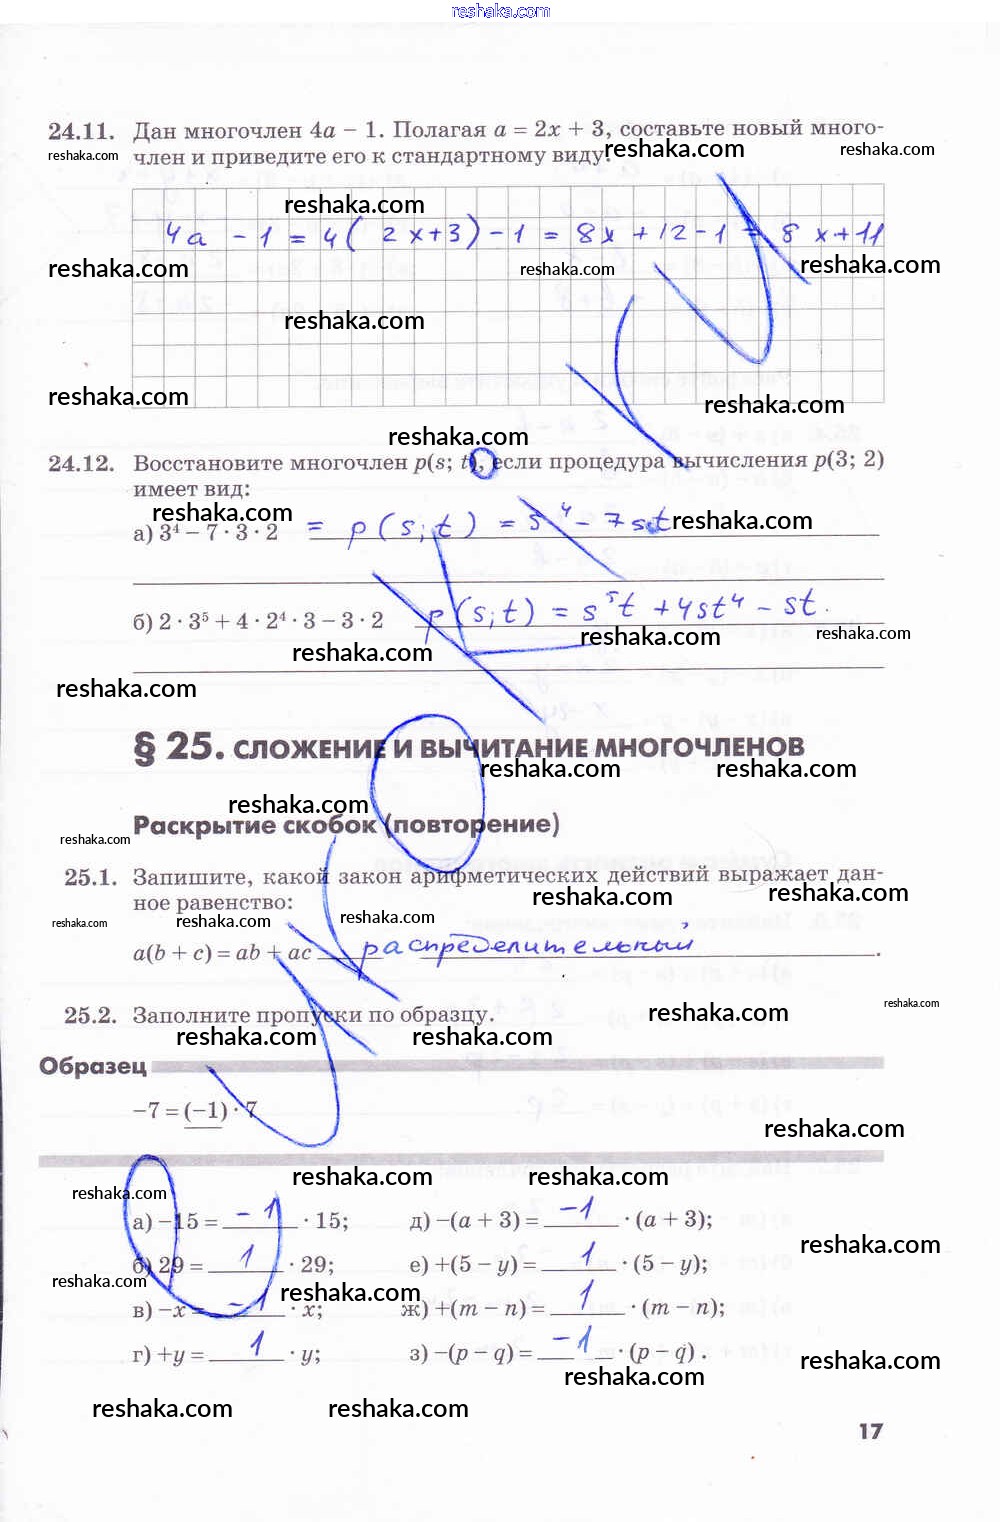 reshaka.com
24.11. Дан многочлен 4a − 1. Полагая a = 2x + 3, составьте новый много-
reshaka.com reshaka.com reshaka.com
член и приведите его к стандартному виду.
reshaka.com
4a − 1 = 4(2x+3) − 1 = 8x + 12 − 1 = 8x+11
reshaka.com reshaka.com reshaka.com
reshaka.com
reshaka.com reshaka.com
reshaka.com
24.12. Восстановите многочлен p(s; t), если процедура вычисления p(3; 2)
имеет вид:
reshaka.com reshaka.com
а) 3⁴ − 7 · 3 · 2 = p(s;t) = s⁴ − 7st
б) 2 · 3⁵ + 4 · 2⁴ · 3 − 3 · 2 p(s;t) = s⁵t + 4st⁴ − st.
reshaka.com reshaka.com reshaka.com
reshaka.com
§ 25. СЛОЖЕНИЕ И ВЫЧИТАНИЕ МНОГОЧЛЕНОВ
reshaka.com reshaka.com
reshaka.com
Раскрытие скобок (повторение)
reshaka.com
25.1. Запишите, какой закон арифметических действий выражает дан-
reshaka.com reshaka.com
ное равенство:
reshaka.com reshaka.com reshaka.com
a(b + c) = ab + ac распределительный.
reshaka.com reshaka.com
25.2. Заполните пропуски по образцу.
reshaka.com reshaka.com
Образец
−7 = (−1) · 7
reshaka.com
reshaka.com reshaka.com
reshaka.com
а) −15 = −1 · 15; д) −(a + 3) = −1 · (a + 3);
reshaka.com
б) 29 = 1 · 29; е) +(5 − y) = 1 · (5 − y);
reshaka.com reshaka.com
в) −x = −1 · x; ж) +(m − n) = 1 · (m − n);
г) +y = 1 · y; з) −(p − q) = −1 · (p − q) .
reshaka.com reshaka.com
reshaka.com reshaka.com
17